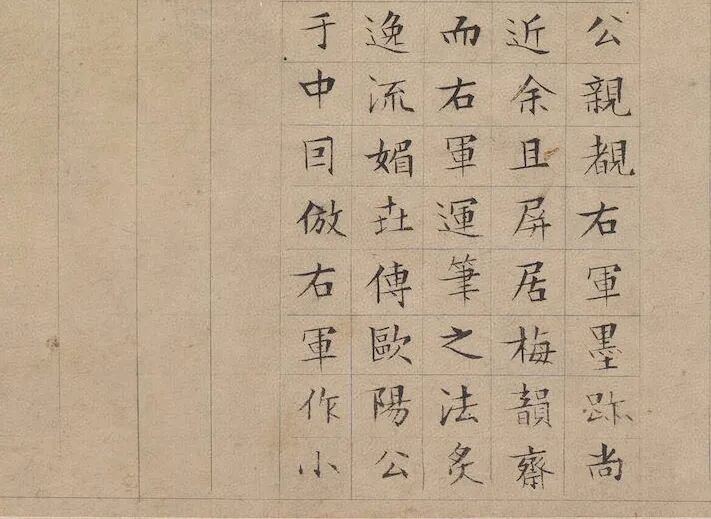 公親覩右軍墨跡尚
近余且屏居梅韻齋
而右軍運筆之法炙
逸流媚𡉏傳歐陽公
于中囙倣右軍作小